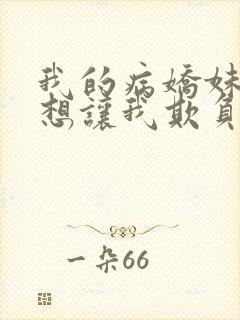 我的病嬌妹
想讓我欺負
一朵66